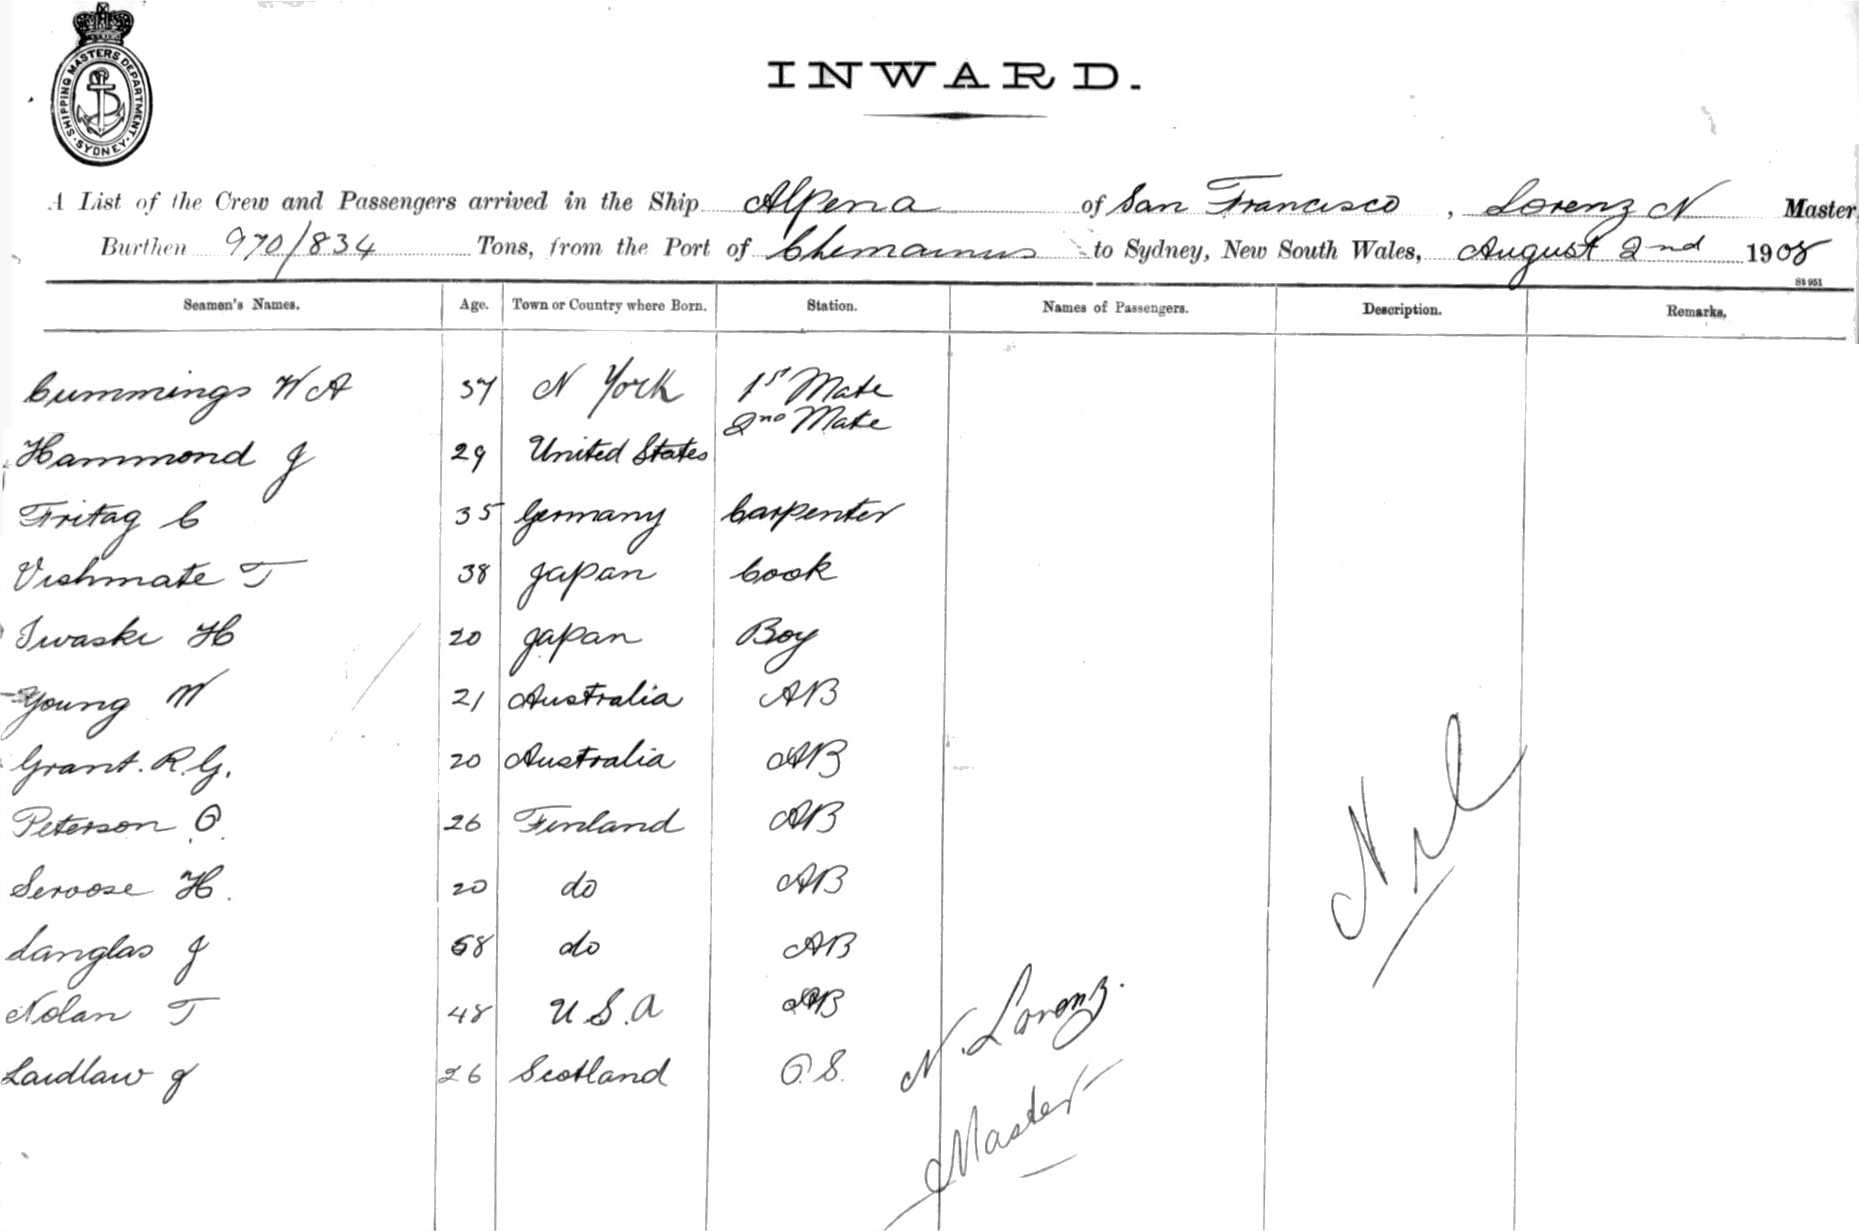 SHIPPING MASTERS DEPARTMENT. SYDNEY.
INWARD.
A List of the Crew and Passengers arrived in the Ship Alpena of San Francisco, Lorenz N Master
Burthen 970/834 Tons, from the Port of Chemainus to Sydney, New South Wales, August 2nd 1908
St 951
Seamen's Names. Age. Town or Country where Born. Station. Names of Passengers. Description. Remarks.
Cummings W A 37 N York 1st Mate
2nd Mate
Hammond J 29 United States
Fritag C 35 Germany Carpenter
Vishmate T 38 Japan Cook
Iwaski H 20 Japan Boy
Young W 21 Australia AB
Grant. R. G. 20 Australia AB
Peterson O. 26 Finland AB
Seroose H. 20 do AB
Langlas J 58 do AB
Nolan T 48 U.S.A AB
Laidlaw J 26 Scotland O.S.
Nil
N. Lorenz.
Master